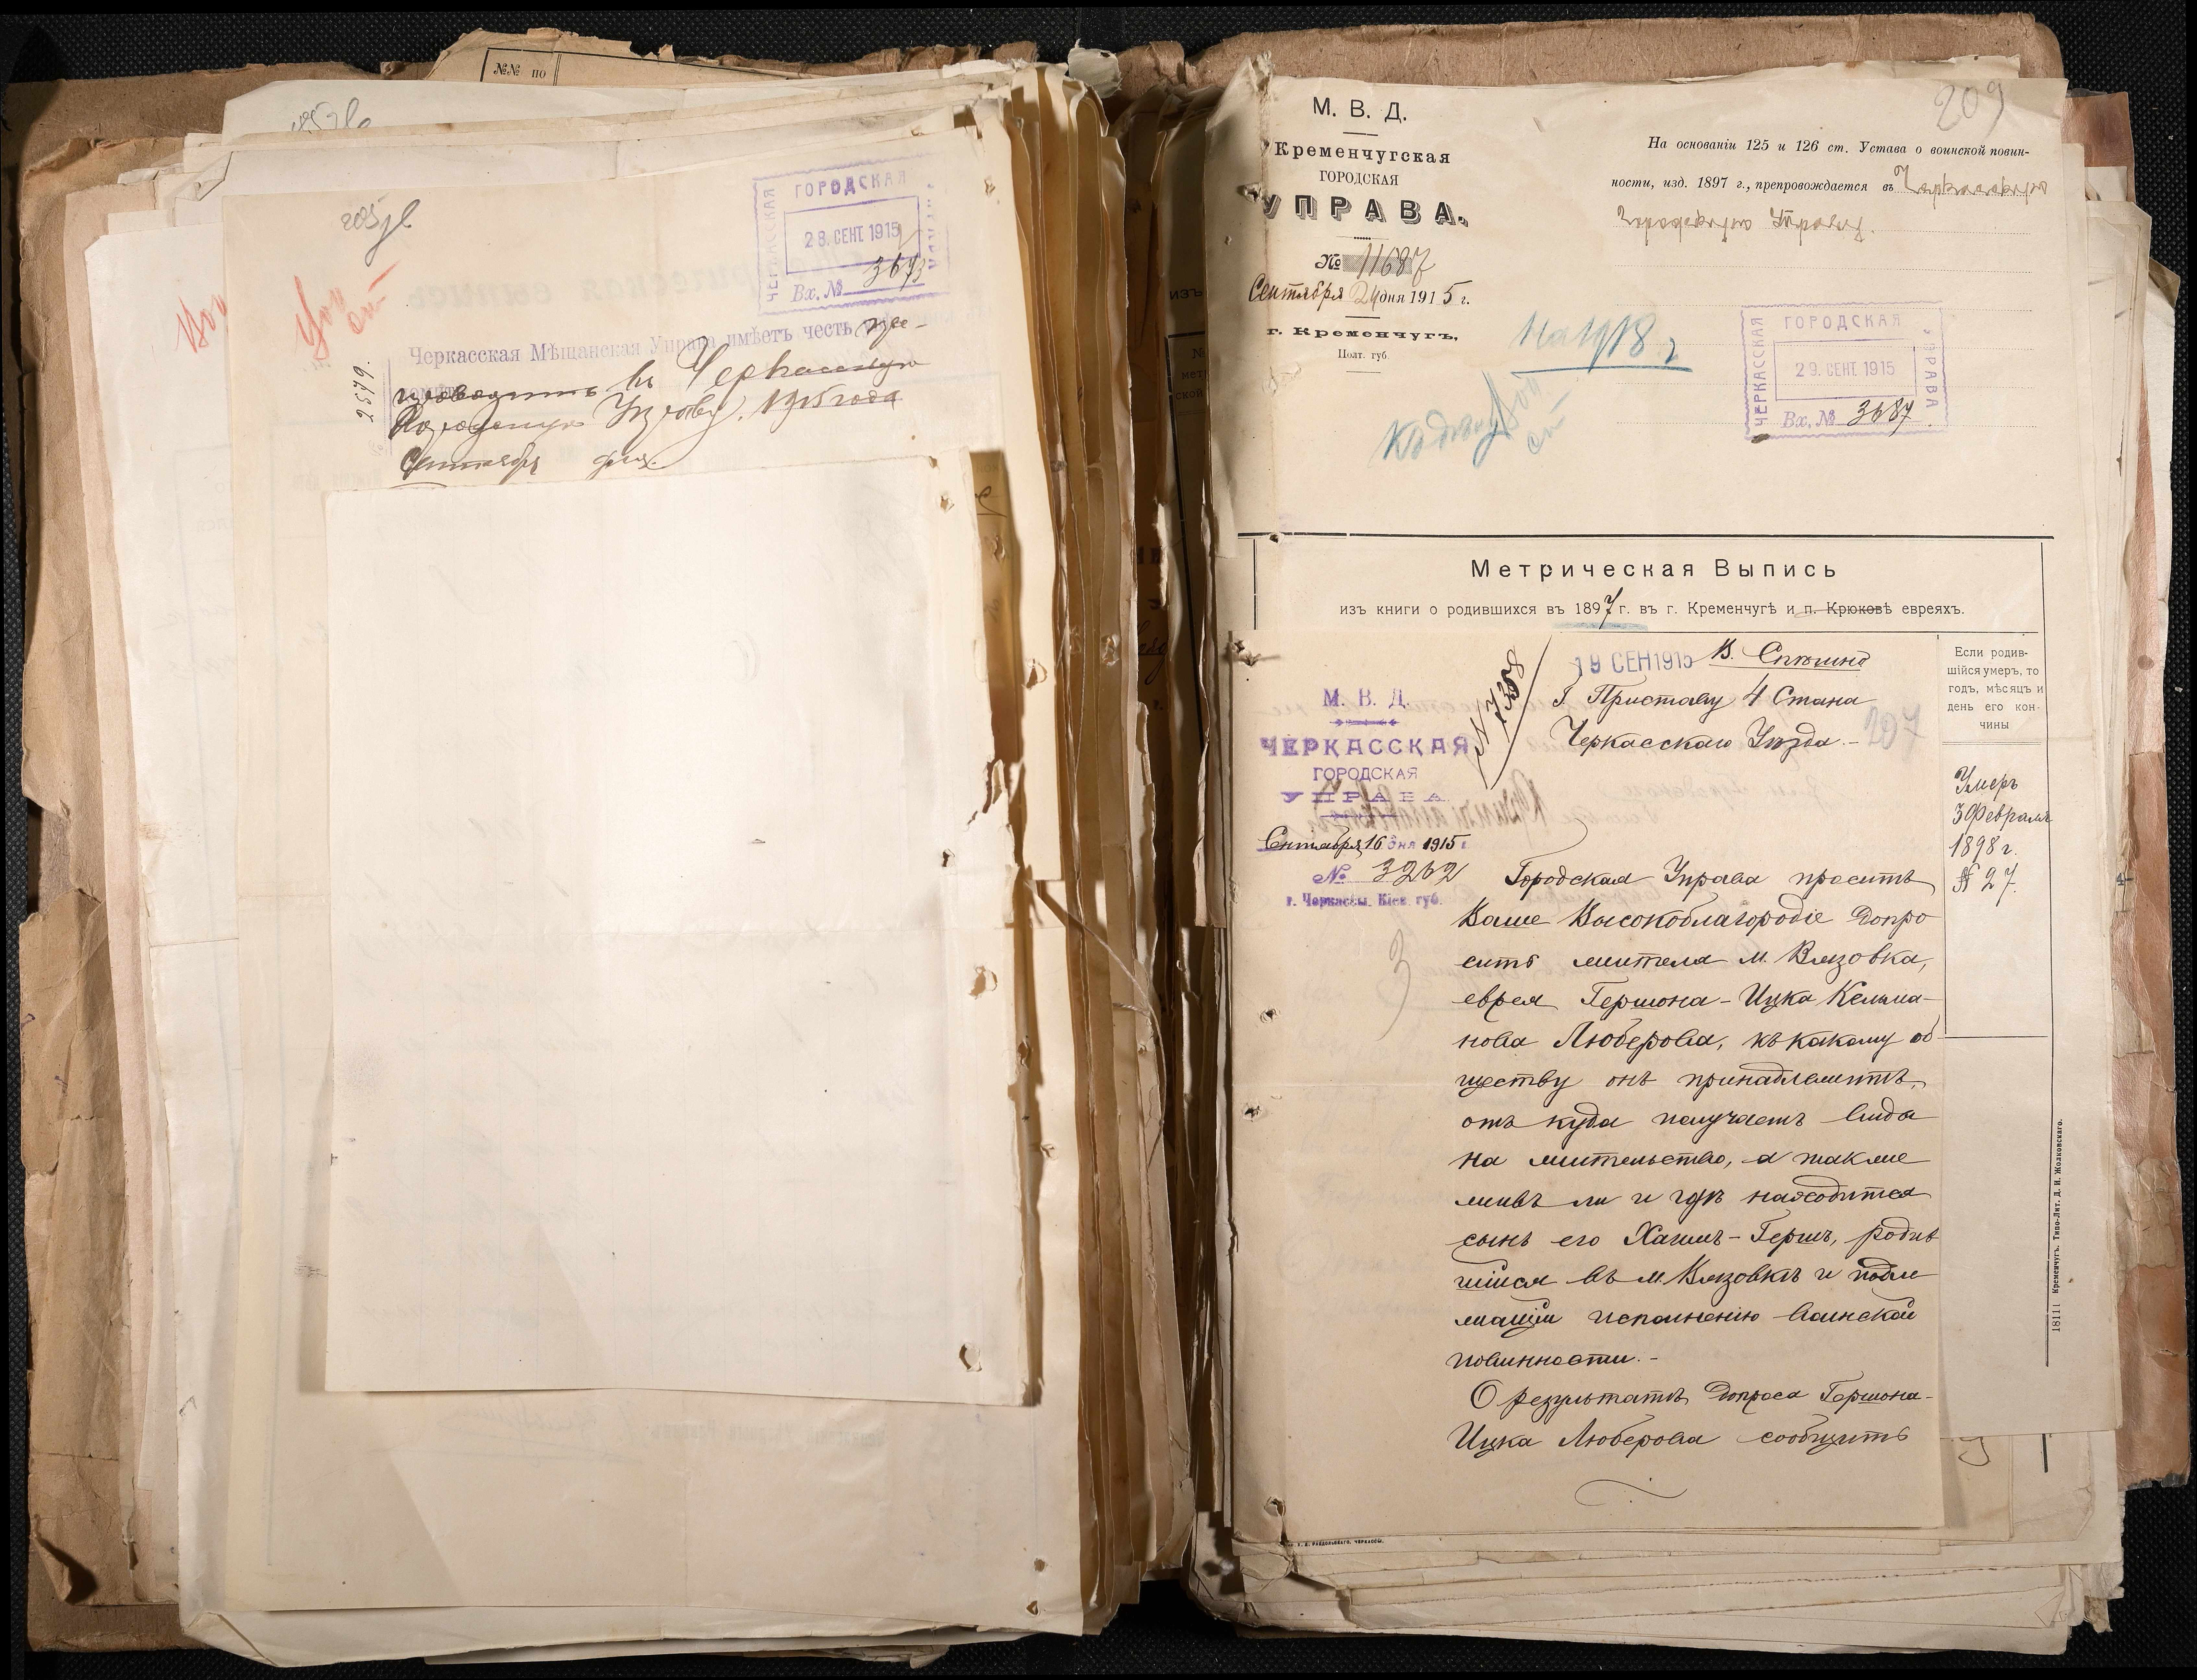 №№ по
205 л
ЧЕРКАССКАЯ ГОРОДСКАЯ УПРАВА
28. СЕНТ. 1915
Вх. № 3673
Черкасская Мѣщанская Управа имѣетъ честь пре-
въ Черкасскую
Городскую Управу. 1915 года
Сентября дня.
2579.
209
М. В. Д.
Кременчугская
ГОРОДСКАЯ
УПРАВА.
№ 11687
Сентября 24 дня 1915 г.
г. Кременчугъ,
Полт. губ
На основаніи 125 и 126 ст. Устава о воинской повин-
ности, изд. 1897 г., препровождается въ Черкасскую
Городскую Управу.
На 1918 г
ЧЕРКАССКАЯ ГОРОДСКАЯ УПРАВА
29. СЕНТ. 1915
Вх. № 3687
Метрическая Выпись
изъ книги о родившихся въ 1897 г. въ г. Кременчугѣ и п. Крюковѣ евреяхъ.
Если родив-
шійся умеръ, то
годъ, мѣсяцъ и
день его кон-
чины
Умеръ
3 Февраля
1898 г.
№ 27.
19 СЕН 1915 В. Спѣшно
N 7358
Г. Приставу 4 Стана
Черкасскаго Уѣзда.-
207
М. В. Д.
ЧЕРКАССКАЯ
ГОРОДСКАЯ
УПРАВА.
Сентября 16 дня 1915 г.
№ 3262
г. Черкассы, Кіев. губ.
Городская Управа проситъ
Ваше Высокоблагородіе допро
сить жителя м. Вязовка,
еврея Гершона-Ицка Кельма-
нова Люберова, къ какому об-
ществу онъ принадлежитъ,
отъ куда получаетъ вида
на жительство, а также
живъ ли и гдѣ находится
сынъ его Хаимъ-Гершъ, родив
шійся въ м. Вязовкѣ и подле
жащій исполненію воинской
повинности.-
О результатѣ допроса Гершона-
Ицка Люберова сообщить
18111 Кременчугъ. Типо-Лит. Д. И. Жолковскаго.